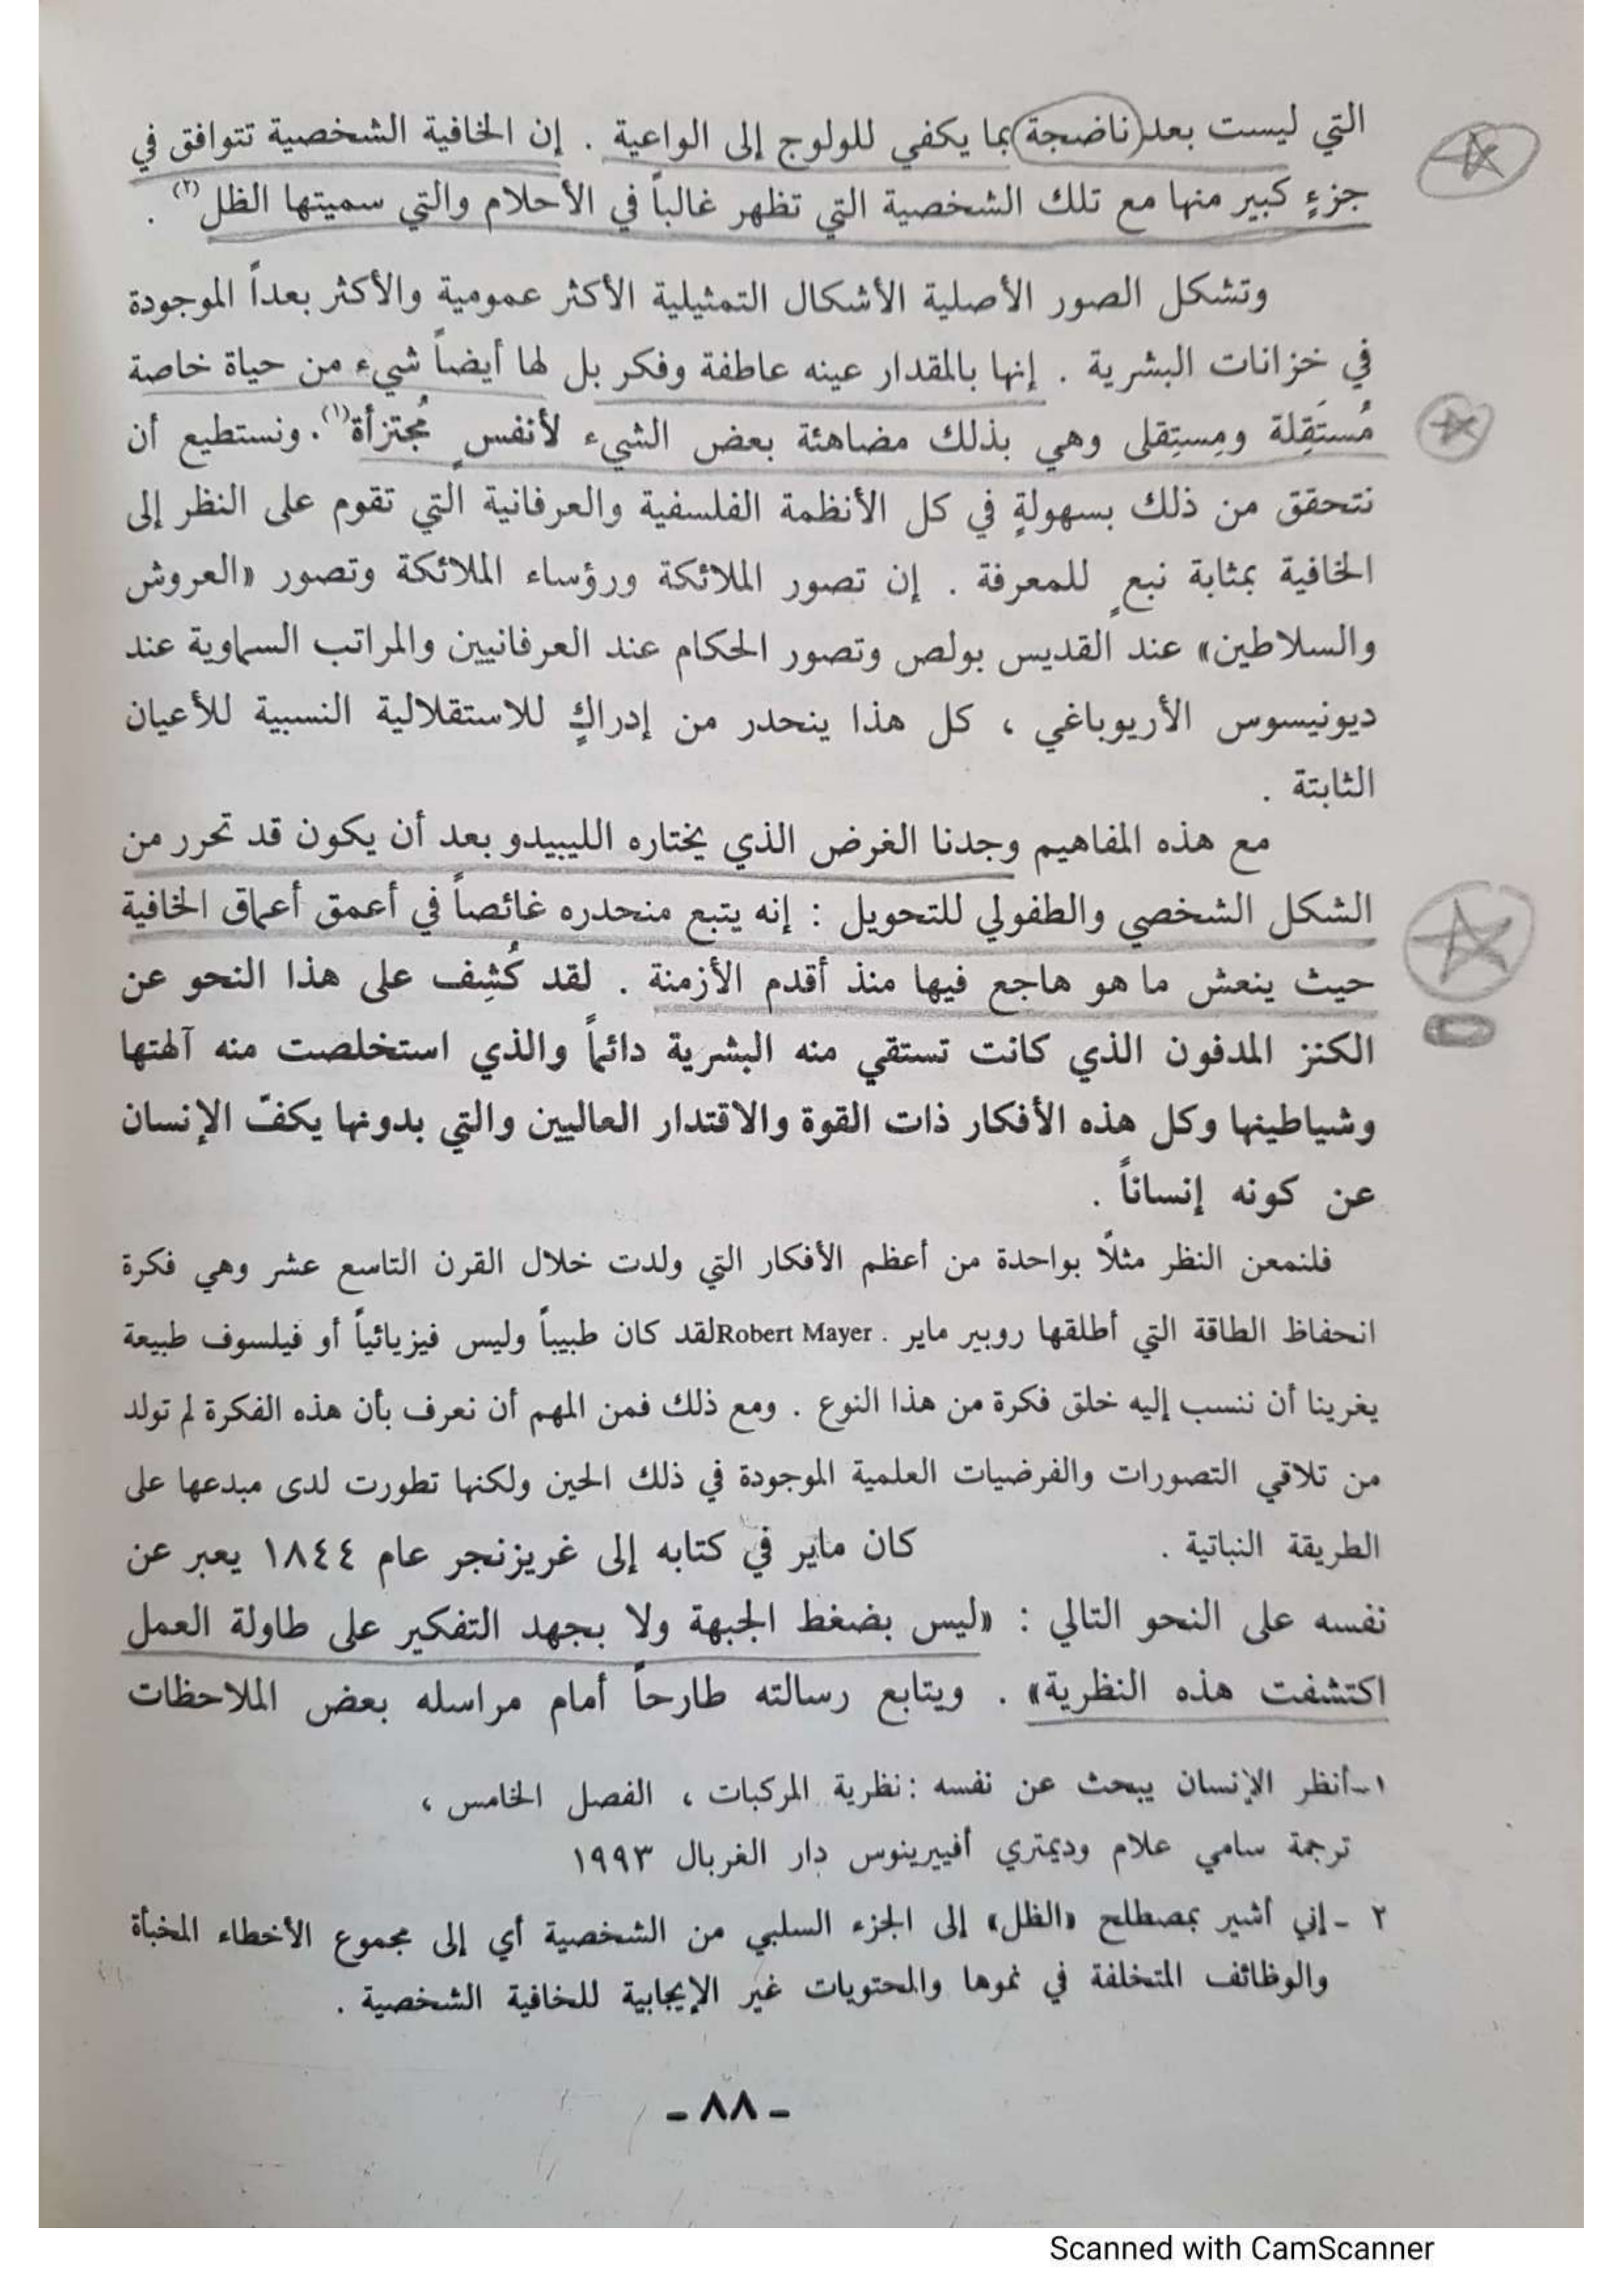 التي ليست بعد ناضجة بما يكفي للولوج إلى الواعية . إن الخافية الشخصية تتوافق في
جزءٍ كبير منها مع تلك الشخصية التي تظهر غالباً في الأحلام والتي سميتها الظل (٢) .
وتشكل الصور الأصلية الأشكال التمثيلية الأكثر عمومية والأكثر بعداً الموجودة
في خزانات البشرية . إنها بالمقدار عينه عاطفة وفكر بل لها أيضاً شيء من حياة خاصة
مُستَقِلة ومِستِقلى وهي بذلك مضاهئة بعض الشيء لأنفسٍ مُجتزأة(١). ونستطيع أن
نتحقق من ذلك بسهولةٍ في كل الأنظمة الفلسفية والعرفانية التي تقوم على النظر إلى
الخافية بمثابة نبعٍ للمعرفة . إن تصور الملائكة ورؤساء الملائكة وتصور «العروش
والسلاطين» عند القديس بولص وتصور الحكام عند العرفانيين والمراتب السماوية عند
ديونيسوس الأريوباغي ، كل هذا ينحدر من إدراكٍ للاستقلالية النسبية للأعيان
الثابتة .
مع هذه المفاهيم وجدنا الغرض الذي يختاره الليبيدو بعد أن يكون قد تحرر من
الشكل الشخصي والطفولي للتحويل : إنه يتبع منحدره غائصاً في أعمق أعماق الخافية
حيث ينعش ما هو هاجع فيها منذ أقدم الأزمنة . لقد كُشِف على هذا النحو عن
الكنز المدفون الذي كانت تستقي منه البشرية دائماً والذي استخلصت منه آلهتها
وشياطينها وكل هذه الأفكار ذات القوة والاقتدار العاليين والتي بدونها يكفّ الإنسان
عن كونه إنساناً .
فلنمعن النظر مثلاً بواحدة من أعظم الأفكار التي ولدت خلال القرن التاسع عشر وهي فكرة
انحفاظ الطاقة التي أطلقها روبير ماير . Robert Mayer لقد كان طبيباً وليس فيزيائياً أو فيلسوف طبيعة
يغرينا أن ننسب إليه خلق فكرة من هذا النوع . ومع ذلك فمن المهم أن نعرف بأن هذه الفكرة لم تولد
من تلاقي التصورات والفرضيات العلمية الموجودة في ذلك الحين ولكنها تطورت لدى مبدعها على
الطريقة النباتية . كان ماير في كتابه إلى غريزنجر عام ١٨٤٤ يعبر عن
نفسه على النحو التالي : «ليس بضغط الجبهة ولا بجهد التفكير على طاولة العمل
اكتشفت هذه النظرية» . ويتابع رسالته طارحاً أمام مراسله بعض الملاحظات
١-أنظر الإنسان يبحث عن نفسه : نظرية المركبات ، الفصل الخامس ،
ترجمة سامي علام وديمتري أفييرينوس دار الغربال ١٩٩٣
٢ - إني أشير بمصطلح «الظل» إلى الجزء السلبي من الشخصية أي إلى مجموع الأخطاء المخبأة
والوظائف المتخلفة في نموها والمحتويات غير الإيجابية للخافية الشخصية .
- ٨٨ -
Scanned with CamScanner